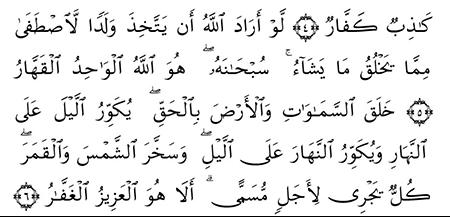 كَـٰذِبٌ كَفَّارٌ ۝٣ لَّوْ أَرَادَ ٱللَّهُ أَن يَتَّخِذَ وَلَدًا لَّٱصْطَفَىٰ
مِمَّا يَخْلُقُ مَا يَشَآءُ ۚ سُبْحَـٰنَهُۥ ۖ هُوَ ٱللَّهُ ٱلْوَٰحِدُ ٱلْقَهَّارُ
۝٥ خَلَقَ ٱلسَّمَـٰوَٰتِ وَٱلْأَرْضَ بِٱلْحَقِّ ۖ يُكَوِّرُ ٱلَّيْلَ عَلَى
ٱلنَّهَارِ وَيُكَوِّرُ ٱلنَّهَارَ عَلَى ٱلَّيْلِ ۖ وَسَخَّرَ ٱلشَّمْسَ وَٱلْقَمَرَ ۖ
كُلٌّ يَجْرِى لِأَجَلٍ مُّسَمًّى ۗ أَلَا هُوَ ٱلْعَزِيزُ ٱلْغَفَّـٰرُ ۝٦